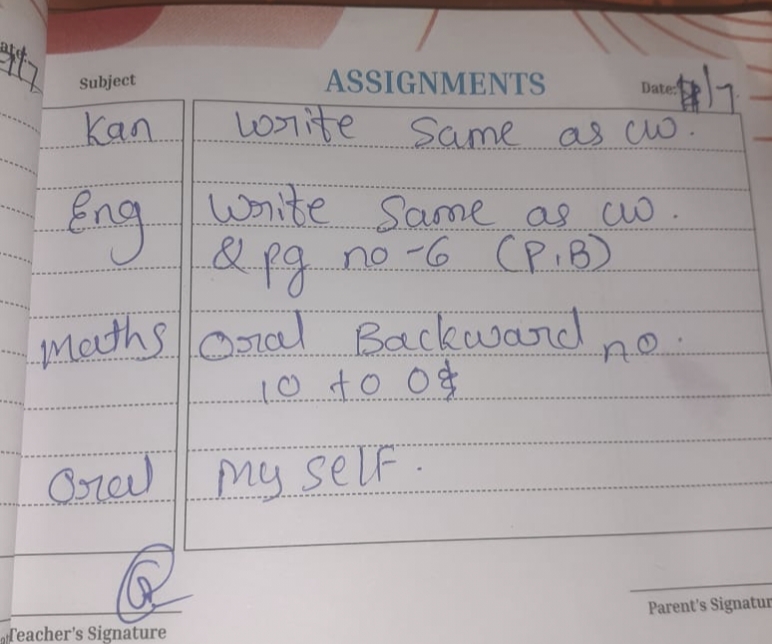 Subject ASSIGNMENTS Date: /7
Kan Write Same as cw.
Eng Write Same as cw.
& pg no-6 (P.B)
Maths Oral Backward no.
10 to 0
Oral My self.
Teacher's Signature Parent's Signatur